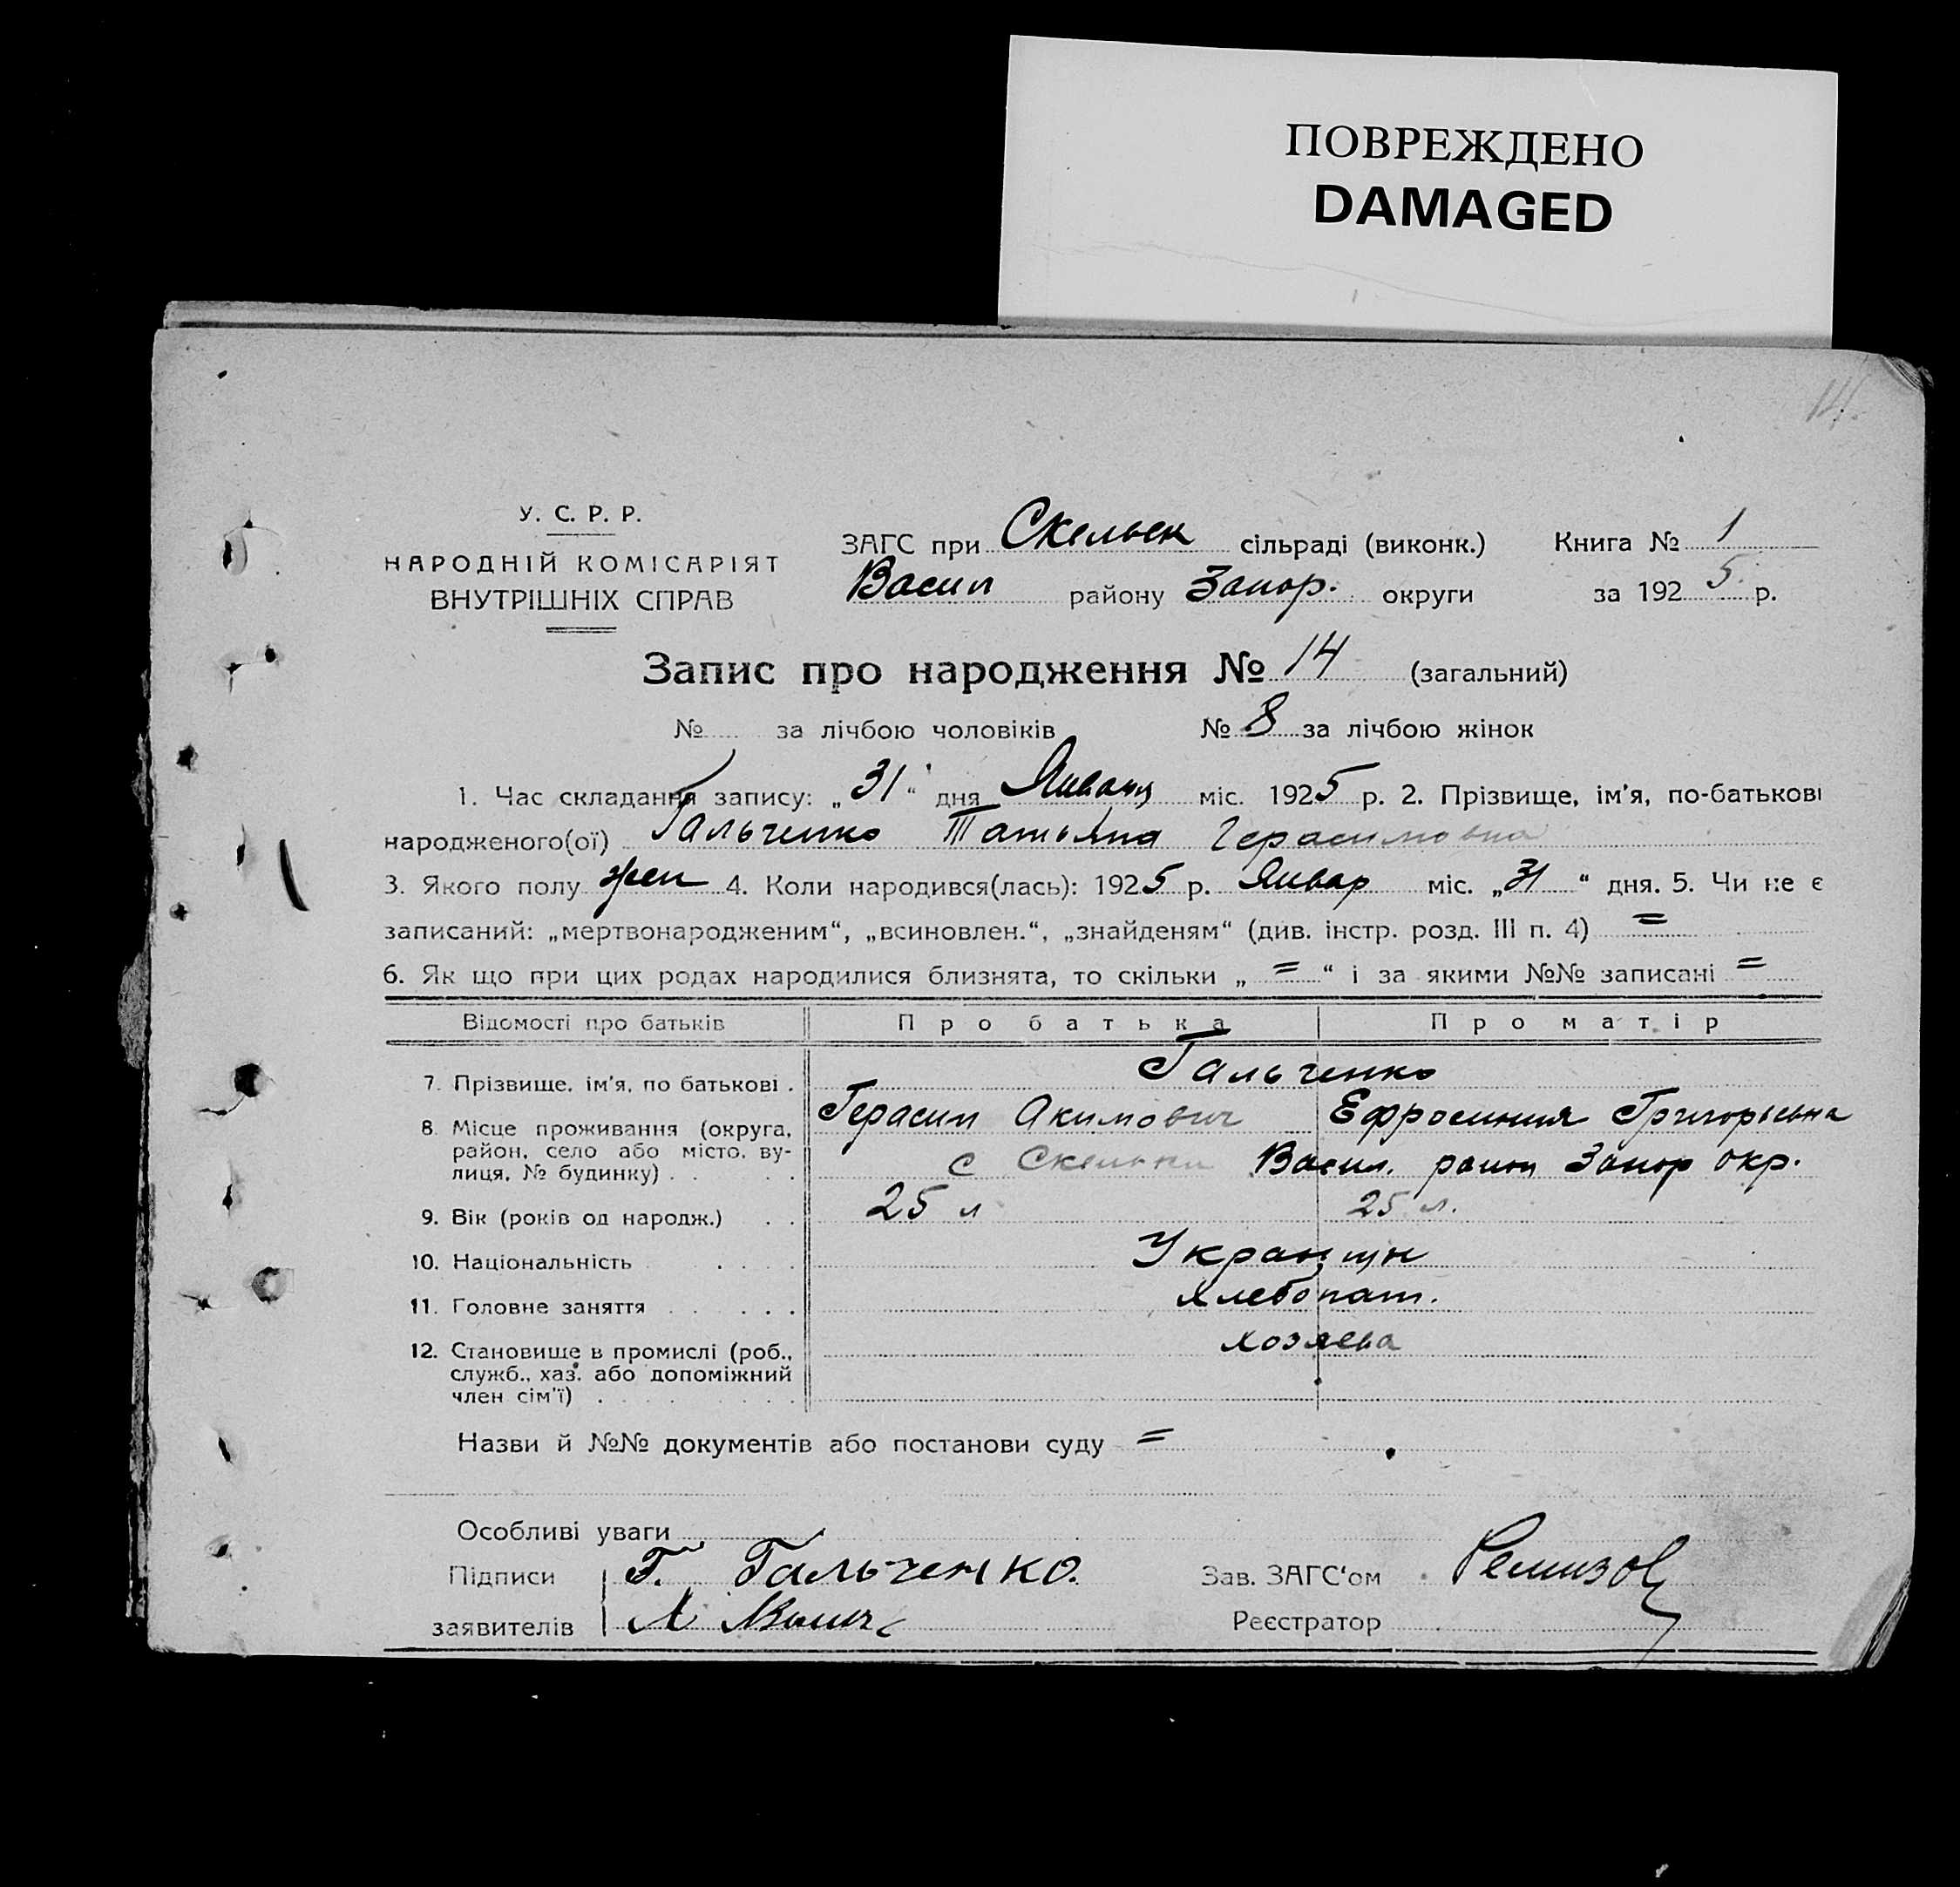 ПОВРЕЖДЕНО
DAMAGED
14.
У. С. Р. Р.
НАРОДНІЙ КОМІСАРІЯТ
ВНУТРІШНІХ СПРАВ
ЗАГС при Скельек сільраді (виконк.) Книга № 1
Васил району Запор. округи за 1925 р.
Запис про народження № 14 (загальний)
№ за лічбою чоловіків № 8 за лічбою жінок
1. Час складання запису: „31“ дня Января міс. 1925 р. 2. Прізвище, ім'я, по-батькові
народженого(ої) Гальченко Татьяна Герасимовна
3. Якого полу жен 4. Коли народився(лась): 1925 р. Январ міс. „31“ дня. 5. Чи не є
записаний: „мертвонародженим“, „всиновлен.“, „знайденям“ (див. інстр. розд. III п. 4) =
6. Як що при цих родах народилися близнята, то скільки „=“ і за якими №№ записані =
Відомості про батьків Про батька Про матір
7. Прізвище, ім'я, по батькові . Гальченко
Герасим Акимович Ефросиния Григорьевна
8. Місце проживання (округа,
район, село або місто, ву-
лиця, № будинку) . . . . с Скельки Васил. район Запор окр.
9. Вік (років од народж.) . . 25 л 25 л.
10. Національність . . . . Украинцы
11. Головне заняття . . . . . Хлебопаш.
12. Становище в промислі (роб.,
служб., хаз. або допоміжний
член сім'ї) . . . . . хозяева
Назви й №№ документів або постанови суду =
Особливі уваги
Підписи
заявителів
Г. Гальченко.
Зав. ЗАГС'ом Ремизов
Реєстратор